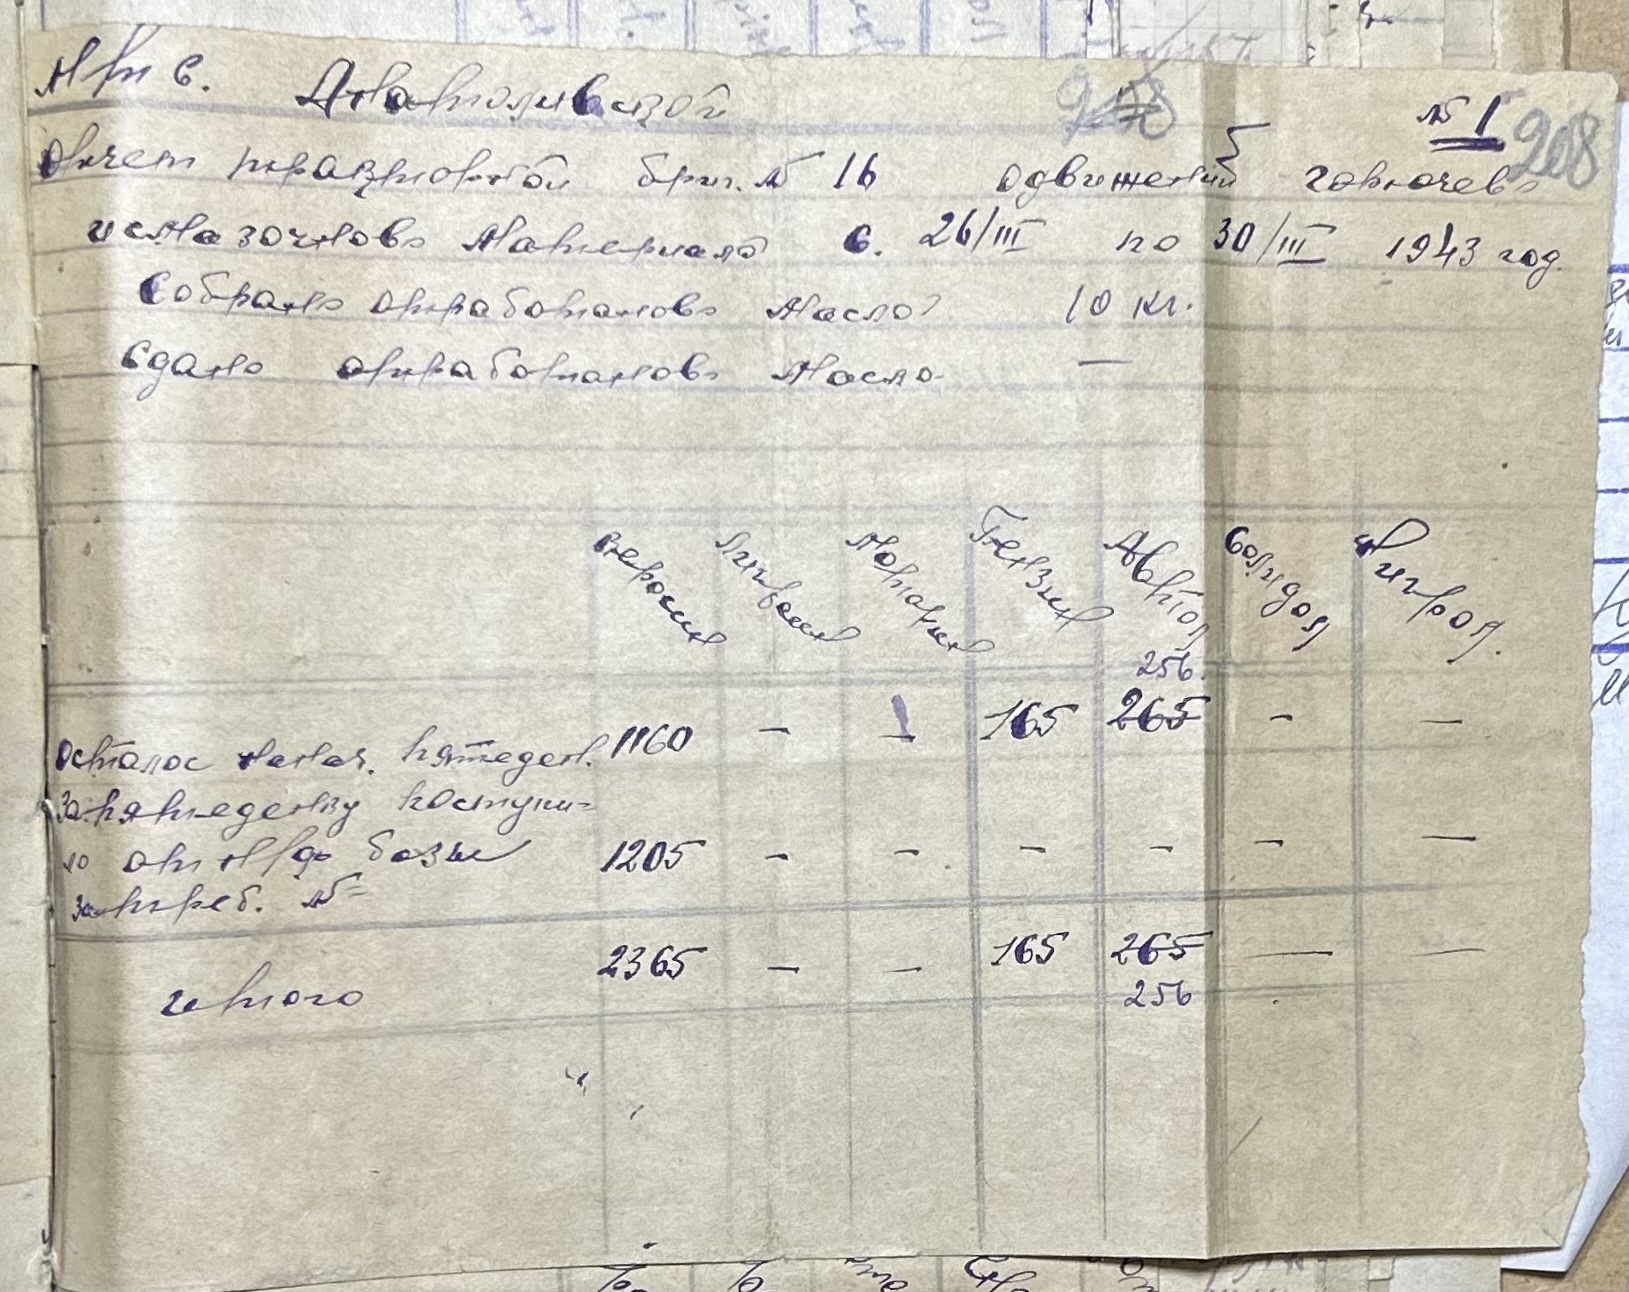 МТС. Анатоливской
№ 1 208
Отчет тракторной бриг. № 16 о движений горючево
и смазочново материало с. 26/III по 30/III 1943 год.
Собрано отработаново масло 10 кг.
Сдано отработаново масло —
керосин лигроин моторин Бензин Автол солидол нигрол.
256.
Осталос на нач. пятеден. 1160 — — 165 265 — —
За пятеденку поступи=
ло от н/ф базы 1205 — — — — — —
за треб. №=
итого 2365 — — 165 265 — —
256